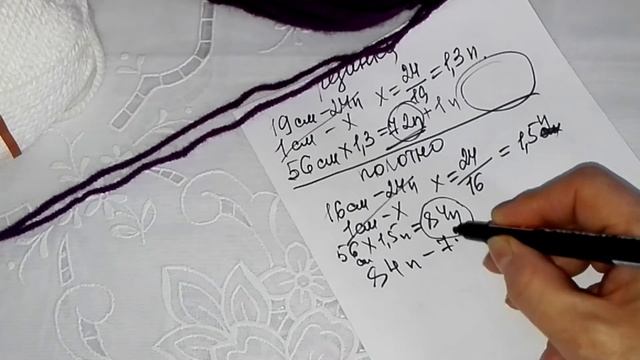 резинка
19см - 24п x = 24/19 = 1,3п
1см - x
56см x 1,3 = 72п + 1п
полотно
16см - 24п x = 24/16 = 1,5п
1см - x
56см x 1,5п = 84п
84п - 7